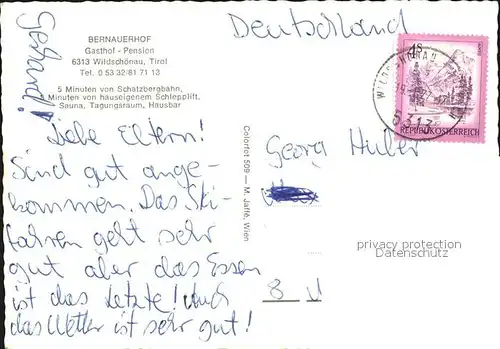 Gerhard!
BERNAUERHOF
Gasthof - Pension
6313 Wildschönau, Tirol
Tel. 0 53 32/81 71 13
5 Minuten von Schatzbergbahn,
Minuten von hauseigenem Schlepplift,
Sauna, Tagungsraum, Hausbar
Liebe Eltern!
Sind gut ange-
kommen. Das Ski-
fahren geht sehr
gut aber das Essen
ist das Letzte! Auch
das Wetter ist sehr gut!
Colorfot 509 — M. Jaffé, Wien
Deutschland
4S
REPUBLIK ÖSTERREICH
Georg Huber
privacy protection
Datenschutz
8